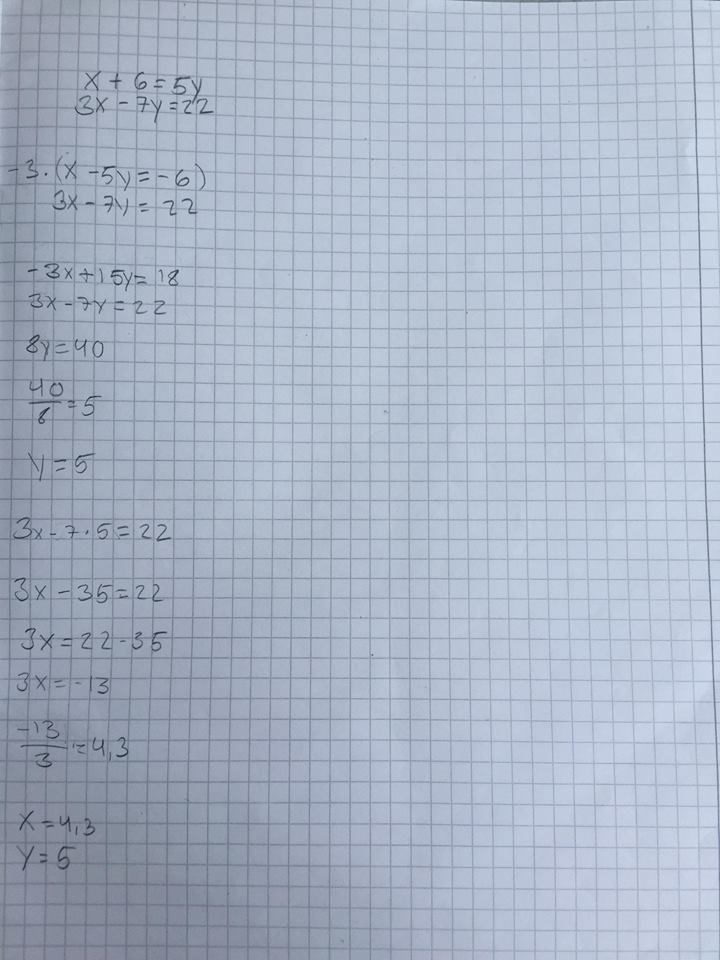 x + 6 = 5y
3x - 7y = 22
-3 · (x - 5y = -6)
3x - 7y = 22
-3x + 15y = 18
3x - 7y = 22
8y = 40
40/8 = 5
y = 5
3x - 7 · 5 = 22
3x - 35 = 22
3x = 22 - 35
3x = -13
-13/3 = 4,3
x = 4,3
y = 5